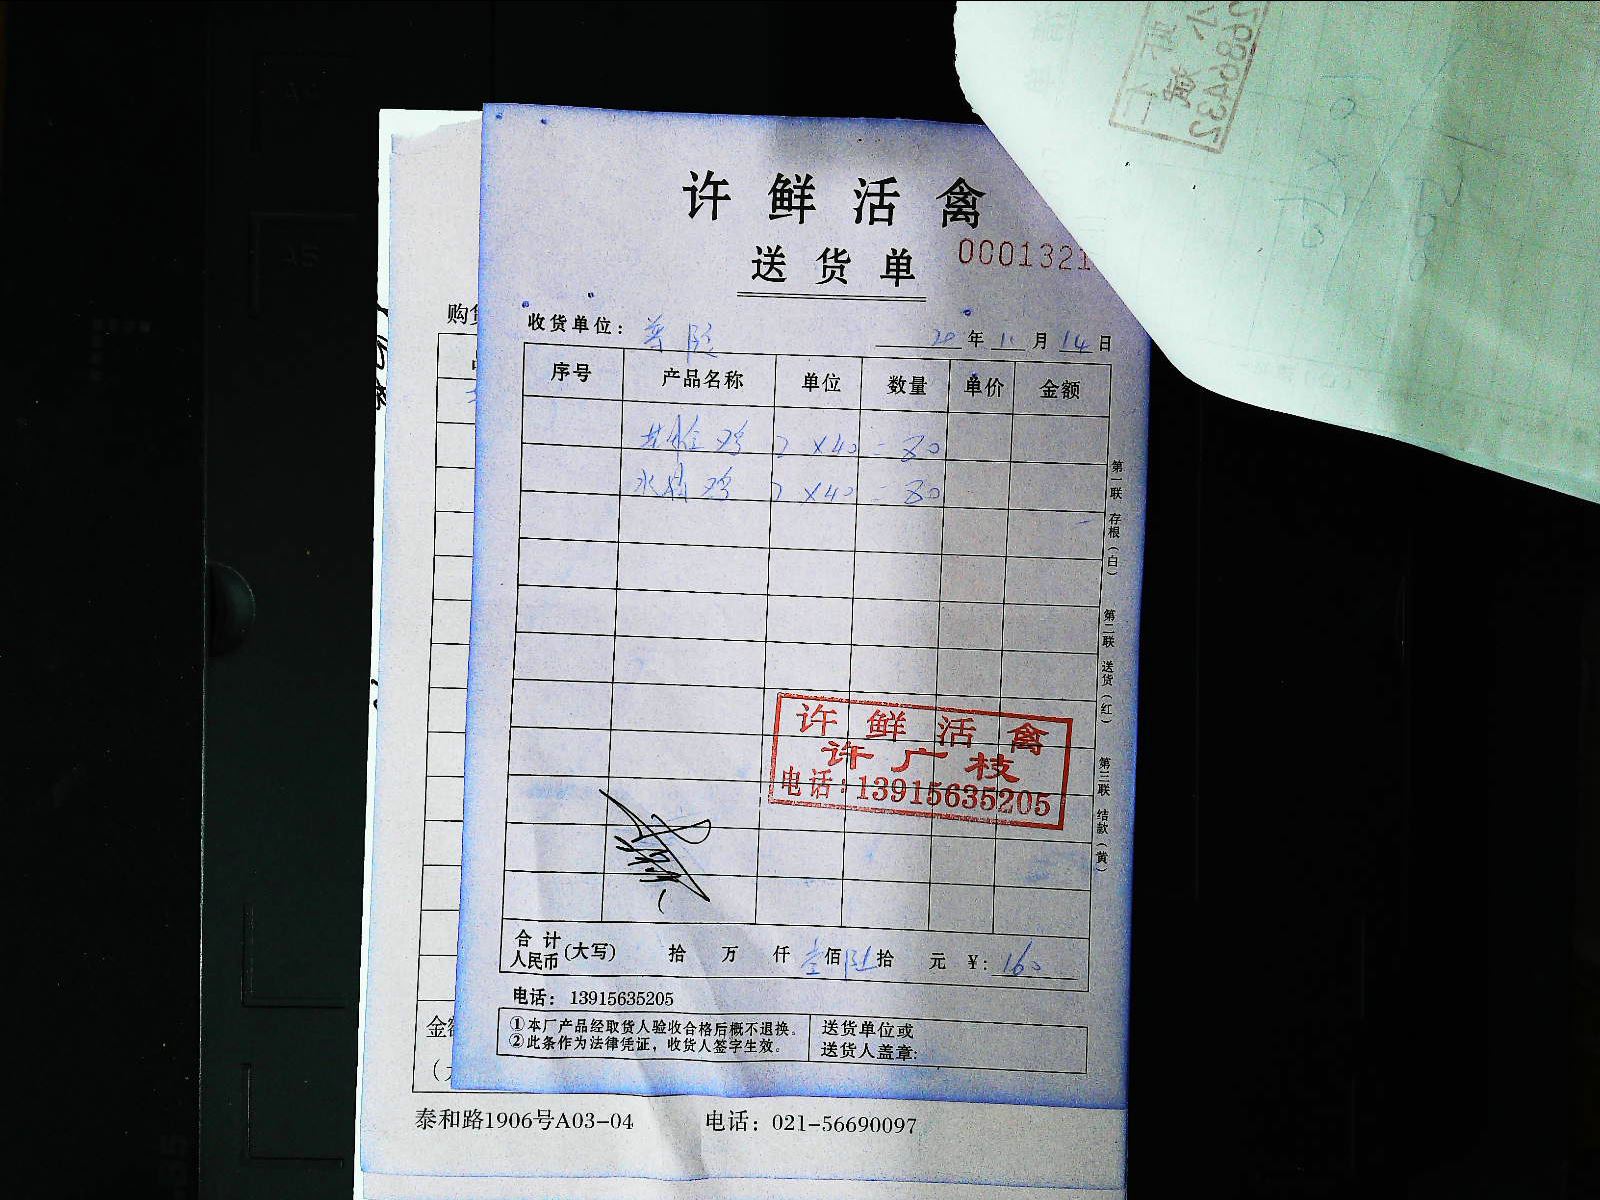 许鲜活禽
送货单
0001321
收货单位：
20年11月14日
序号 产品名称 单位 数量 单价 金额
鸡 2×40=80
水 鸡 2×40=80
第一联 存根（白） 第二联 送货（红） 第三联 结款（黄）
许鲜活禽
许广枝
电话：13915635205
合计人民币（大写） 拾 万 仟 壹佰陆拾 元 ¥：160
电话：13915635205
①本厂产品经取货人验收合格后概不退换。
②此条作为法律凭证，收货人签字生效。
送货单位或
送货人盖章:
购货
金额
泰和路1906号A03-04 电话：021-56690097
A5